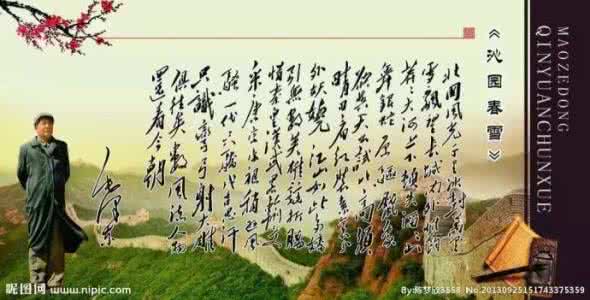 《沁园春雪》
MAOZEDONG
QINYUANCHUNXUE
北国风光千里冰封万里
雪飘望长城内外惟馀
莽莽大河上下顿失滔滔山
舞银蛇原驱腊象
欲与天公试比高须
晴日看红装素裹
分外妖娆 江山如此多娇
引无数英雄竞折腰
惜秦皇汉武略输文
采唐宗宋祖稍逊风
骚一代天骄成吉思汗
只识弯弓射大雕
俱往矣数风流人物
还看今朝
毛泽东
昵图网 www.nipic.com
3558 NO:20130925151743375359